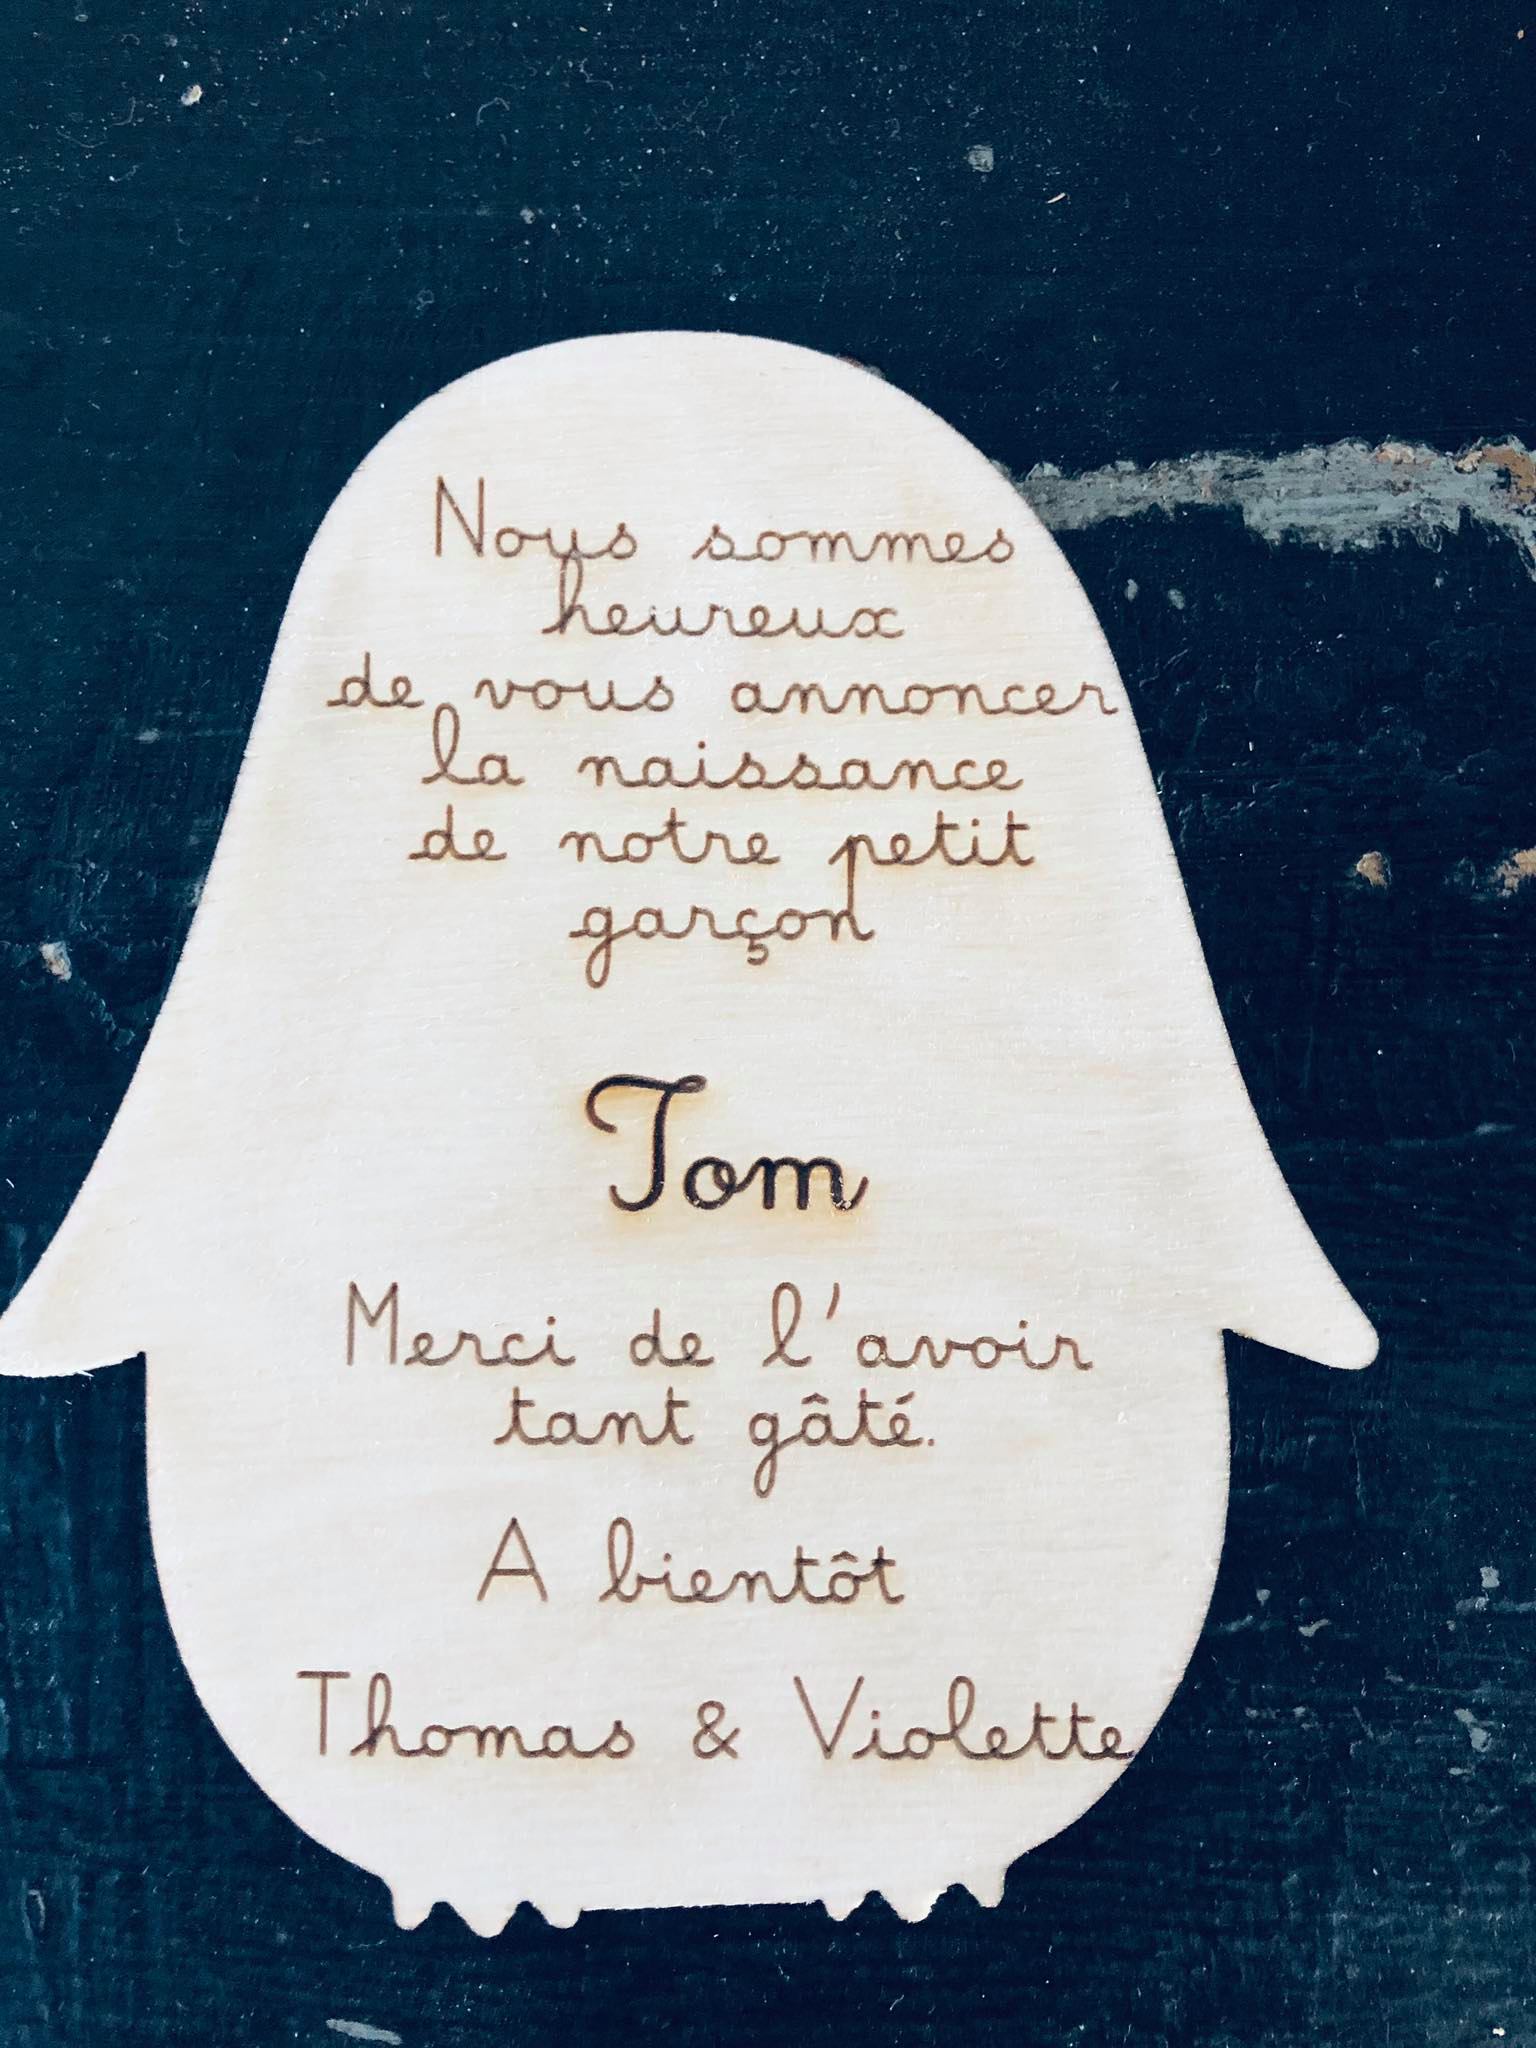 Nous sommes
heureux
de vous annoncer
la naissance
de notre petit
garçon
Tom
Merci de l'avoir
tant gâté.
A bientôt
Thomas & Violette